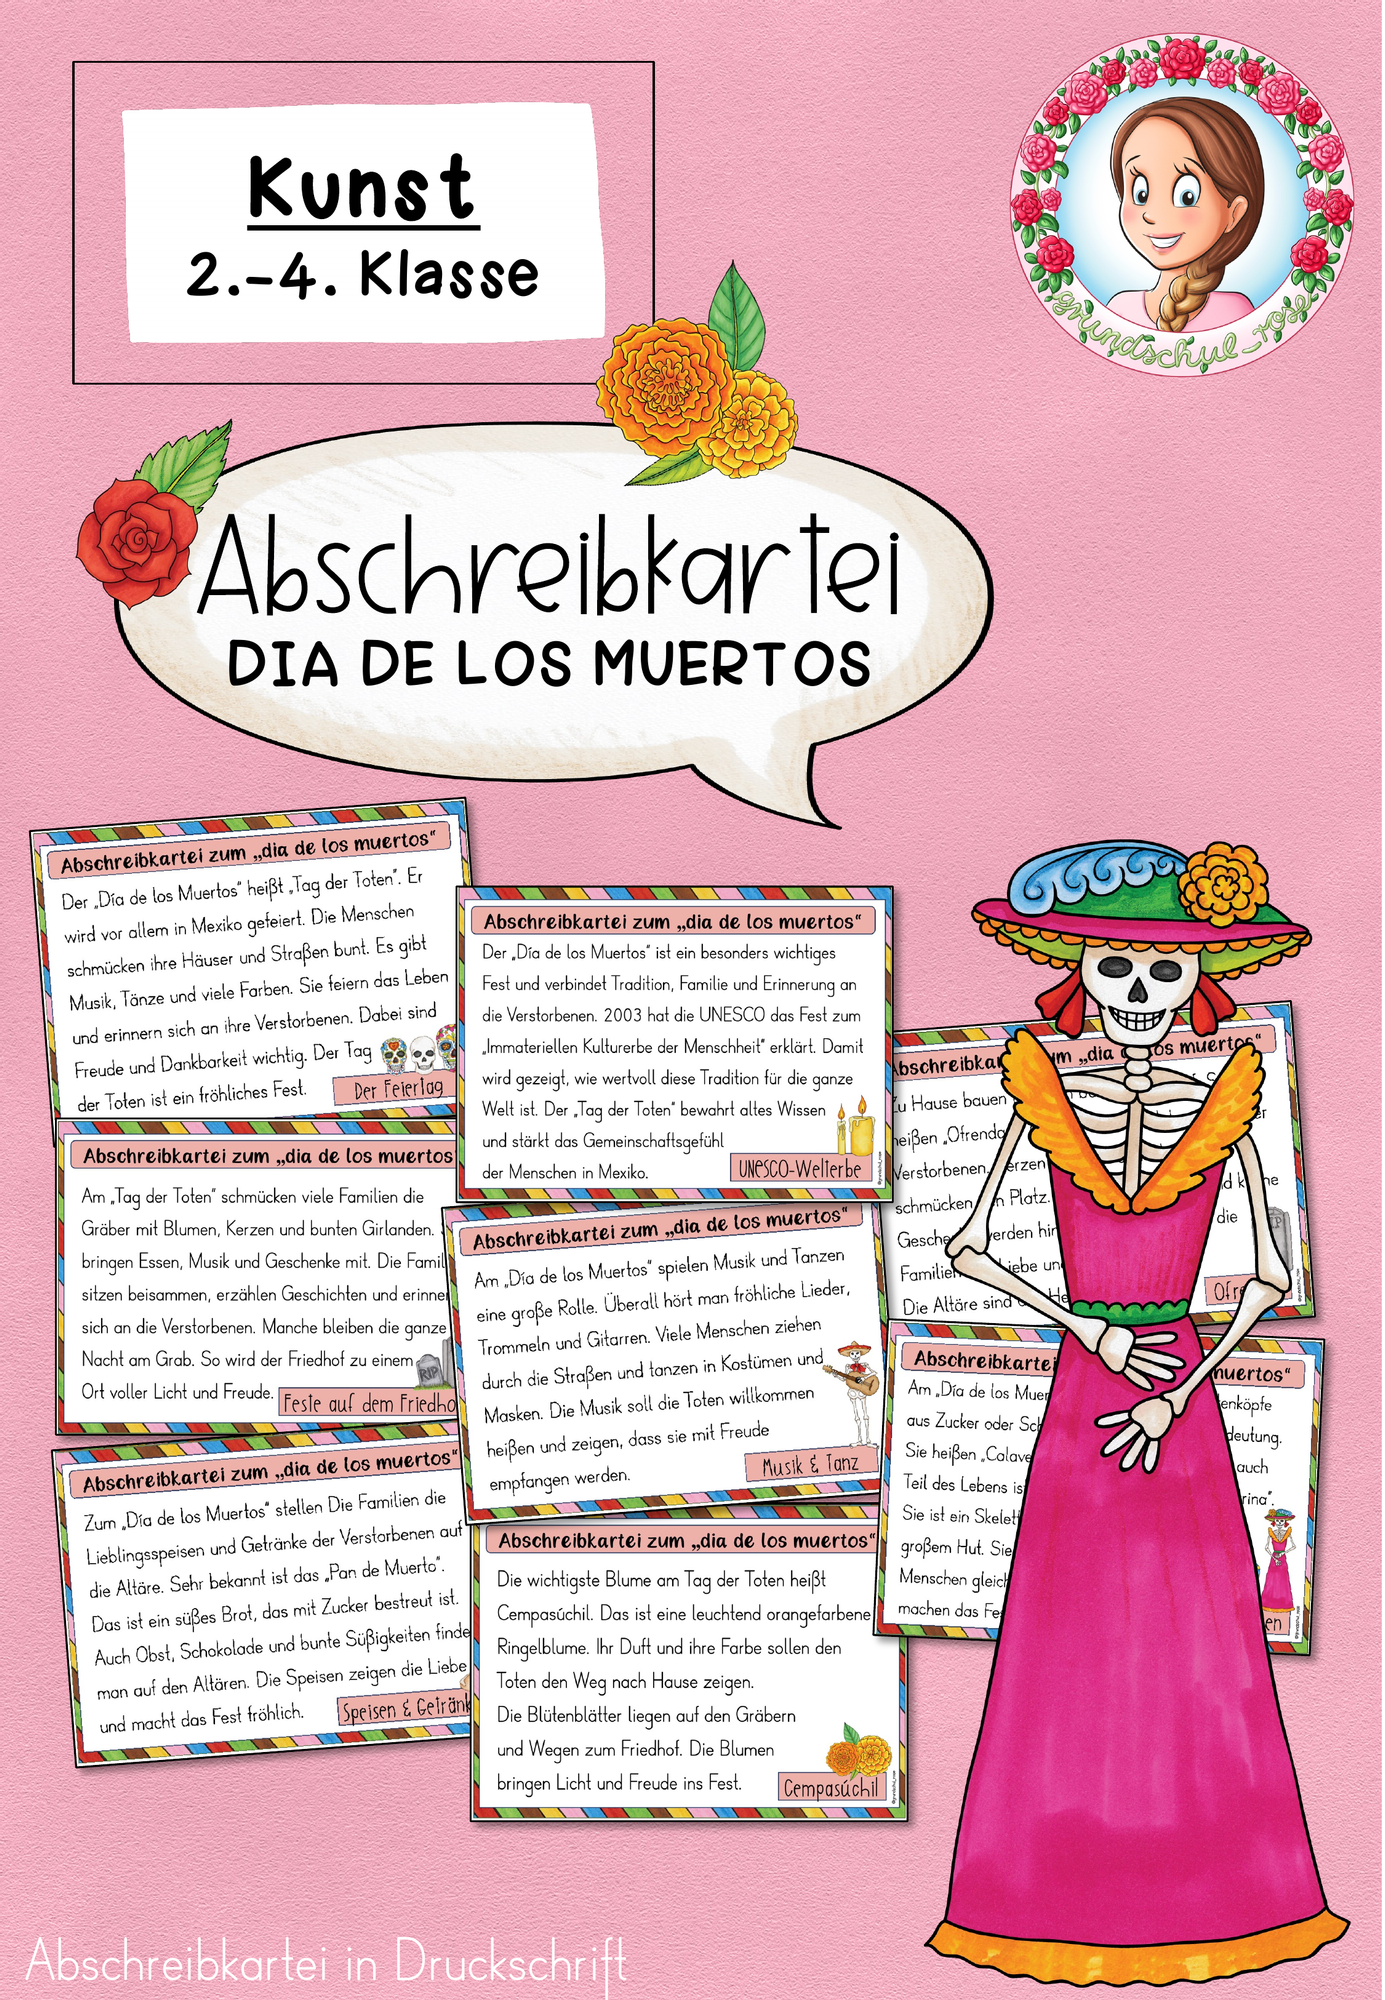 Kunst
2.-4. Klasse
grundschul_rose
Abschreibkartei
DIA DE LOS MUERTOS
Abschreibkartei zum „dia de los muertos“
Der „Día de los Muertos“ heißt „Tag der Toten“. Er
wird vor allem in Mexiko gefeiert. Die Menschen
schmücken ihre Häuser und Straßen bunt. Es gibt
Musik, Tänze und viele Farben. Sie feiern das Leben
und erinnern sich an ihre Verstorbenen. Dabei sind
Freude und Dankbarkeit wichtig. Der Tag
der Toten ist ein fröhliches Fest.
Der Feiertag
Abschreibkartei zum „dia de los muertos“
Der „Día de los Muertos“ ist ein besonders wichtiges
Fest und verbindet Tradition, Familie und Erinnerung an
die Verstorbenen. 2003 hat die UNESCO das Fest zum
„Immateriellen Kulturerbe der Menschheit“ erklärt. Damit
wird gezeigt, wie wertvoll diese Tradition für die ganze
Welt ist. Der „Tag der Toten“ bewahrt altes Wissen
und stärkt das Gemeinschaftsgefühl
der Menschen in Mexiko.
UNESCO-Welterbe
Abschreibkartei zum „dia de los muertos
Am „Tag der Toten“ schmücken viele Familien die
Gräber mit Blumen, Kerzen und bunten Girlanden.
bringen Essen, Musik und Geschenke mit. Die
sitzen beisammen, erzählen Geschichten und
sich an die Verstorbenen. Manche bleiben die ganze
Nacht am Grab. So wird der Friedhof zu einem
Ort voller Licht und Freude.
Feste auf dem
Abschreibkartei zum „dia de los muertos“
Am „Día de los Muertos“ spielen Musik und Tanzen
eine große Rolle. Überall hört man fröhliche Lieder,
Trommeln und Gitarren. Viele Menschen ziehen
durch die Straßen und tanzen in Kostümen und
Masken. Die Musik soll die Toten willkommen
heißen und zeigen, dass sie mit Freude
empfangen werden.
Musik & Tanz
Abschreibkartei zum „dia de los muertos“
Zum „Día de los Muertos“ stellen Die Familien die
Lieblingsspeisen und Getränke der Verstorbenen auf
die Altäre. Sehr bekannt ist das „Pan de Muerto“.
Das ist ein süßes Brot, das mit Zucker bestreut ist.
Auch Obst, Schokolade und bunte Süßigkeiten finde
man auf den Altären. Die Speisen zeigen die Liebe
und macht das Fest fröhlich.
Speisen & Getränk
Abschreibkartei zum „dia de los muertos“
Die wichtigste Blume am Tag der Toten heißt
Cempasúchil. Das ist eine leuchtend orangefarbene
Ringelblume. Ihr Duft und ihre Farbe sollen den
Toten den Weg nach Hause zeigen.
Die Blütenblätter liegen auf den Gräbern
und Wegen zum Friedhof. Die Blumen
bringen Licht und Freude ins Fest.
Cempasúchil
„dia os muertos“
Zu Hause bauen
heißen
Verstorbenen.
schmücken Platz.
die
Familien
Die Altäre sind
Abschreibkartei muertos“
Am „Día de los
aus Zucker oder
Sie heißen
auch
Teil des Lebens
Sie ist ein
großem Hut. Sie
Menschen
machen das
Abschreibkartei in Druckschrift